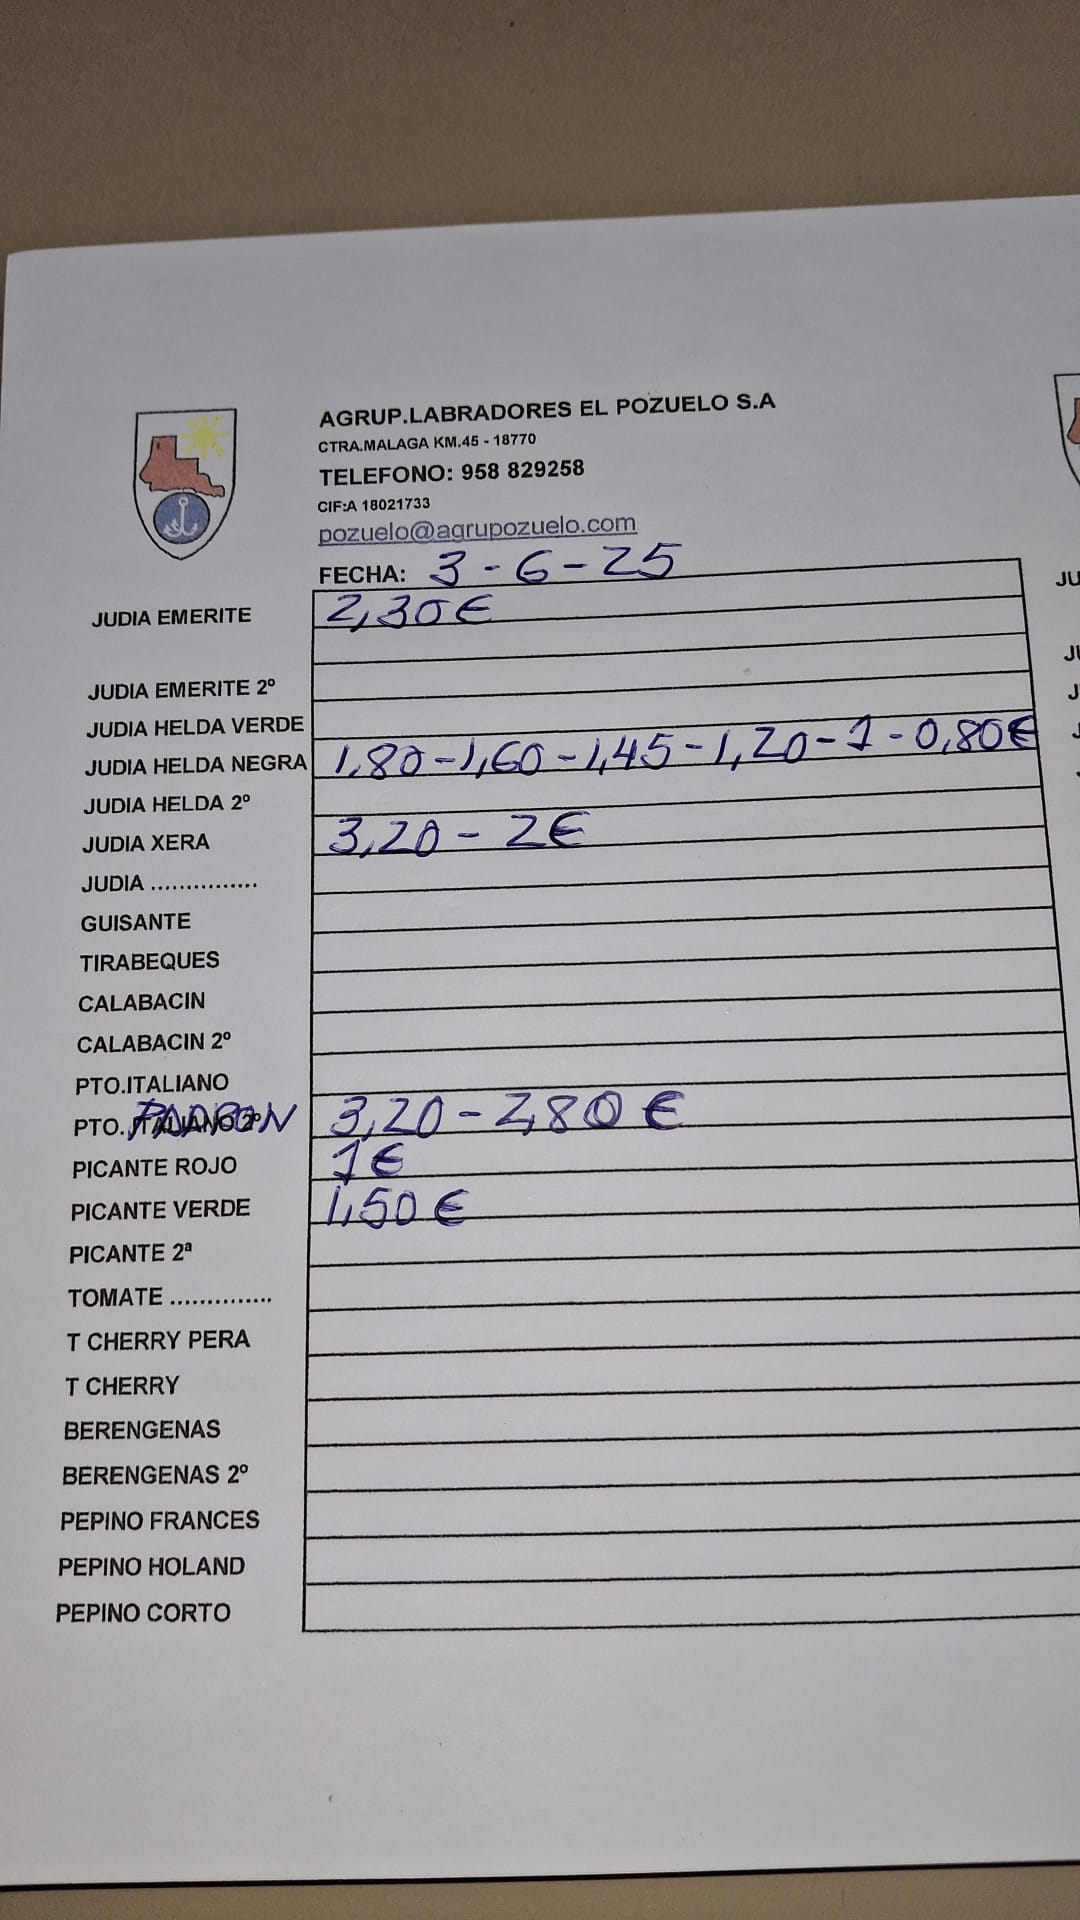 AGRUP.LABRADORES EL POZUELO S.A
CTRA.MALAGA KM.45 - 18770
TELEFONO: 958 829258
CIF:A 18021733
pozuelo@agrupozuelo.com
FECHA: 3-6-25
JUDIA EMERITE 2,30€
JUDIA EMERITE 2º
JUDIA HELDA VERDE
JUDIA HELDA NEGRA 1,80-1,60-1,45-1,20-1-0,80€
JUDIA HELDA 2º
JUDIA XERA 3,20-2€
JUDIA ...............
GUISANTE
TIRABEQUES
CALABACIN
CALABACIN 2º
PTO.ITALIANO
PTO. PADRON 3,20-2,80 €
PICANTE ROJO 1€
PICANTE VERDE 1,50 €
PICANTE 2ª
TOMATE ..............
T CHERRY PERA
T CHERRY
BERENGENAS
BERENGENAS 2º
PEPINO FRANCES
PEPINO HOLAND
PEPINO CORTO